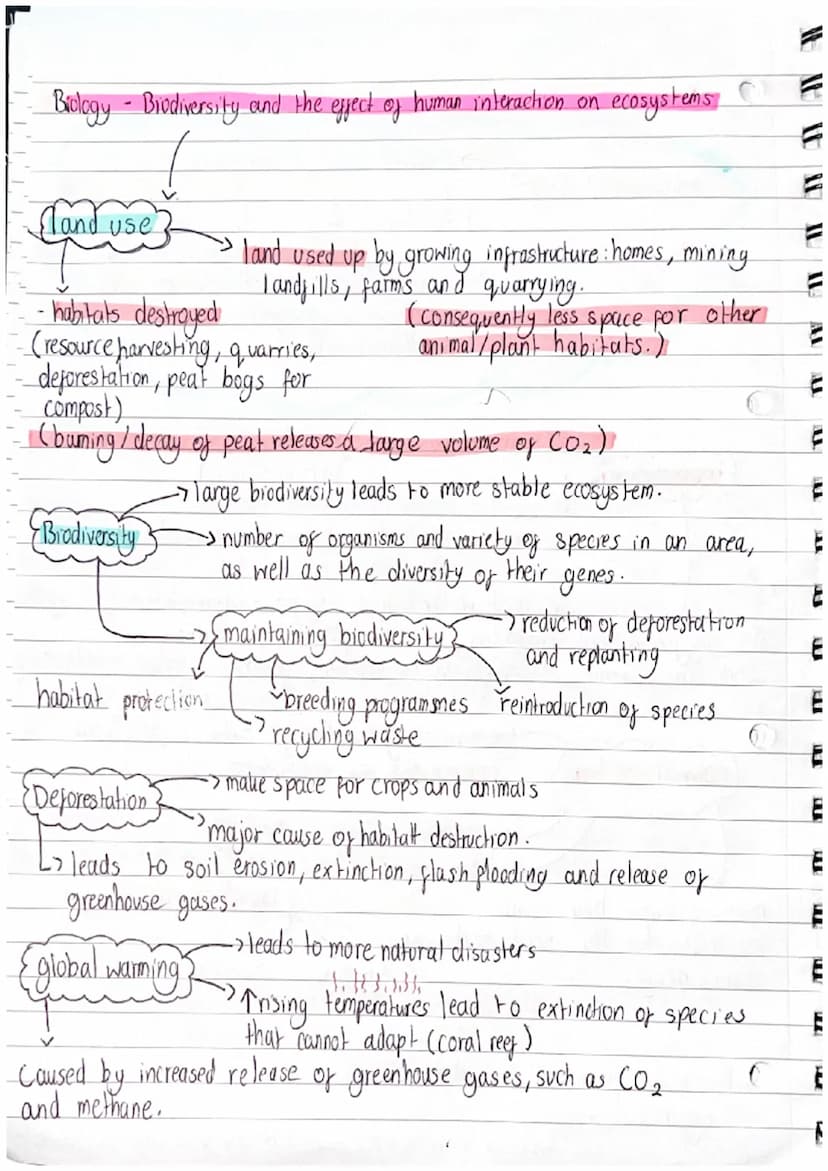 Biology - Biodiversity and the effect of human interaction on ecosystems
land use
land used up by growing infrastructure: homes, mining
landfills, farms and quarrying.
(consequently less space for other
animal/plant habitats.)
- habitats destroyed
(resource harvesting, quarries,
deforestation, peat bogs for
compost)
(burning/decay of peat releases a large volume of CO₂)
large biodiversity leads to more stable ecosystem.
Biodiversity
number of organisms and variety of species in an area,
as well as the diversity of their genes.
maintaining biodiversity
reduction of deforestation
and replanting
habitat protection
breeding programmes
reintroduction of species
recycling waste
make space for crops and animals
Deforestation
major cause of habitatt destruction.
leads to soil erosion, extinction, flash flooding and release of
greenhouse gases.
leads to more natural disasters
global warming
↑rising temperatures lead to extinction of species
that cannot adapt (coral reef)
Caused by increased release of greenhouse gases, such as CO₂
and methane.